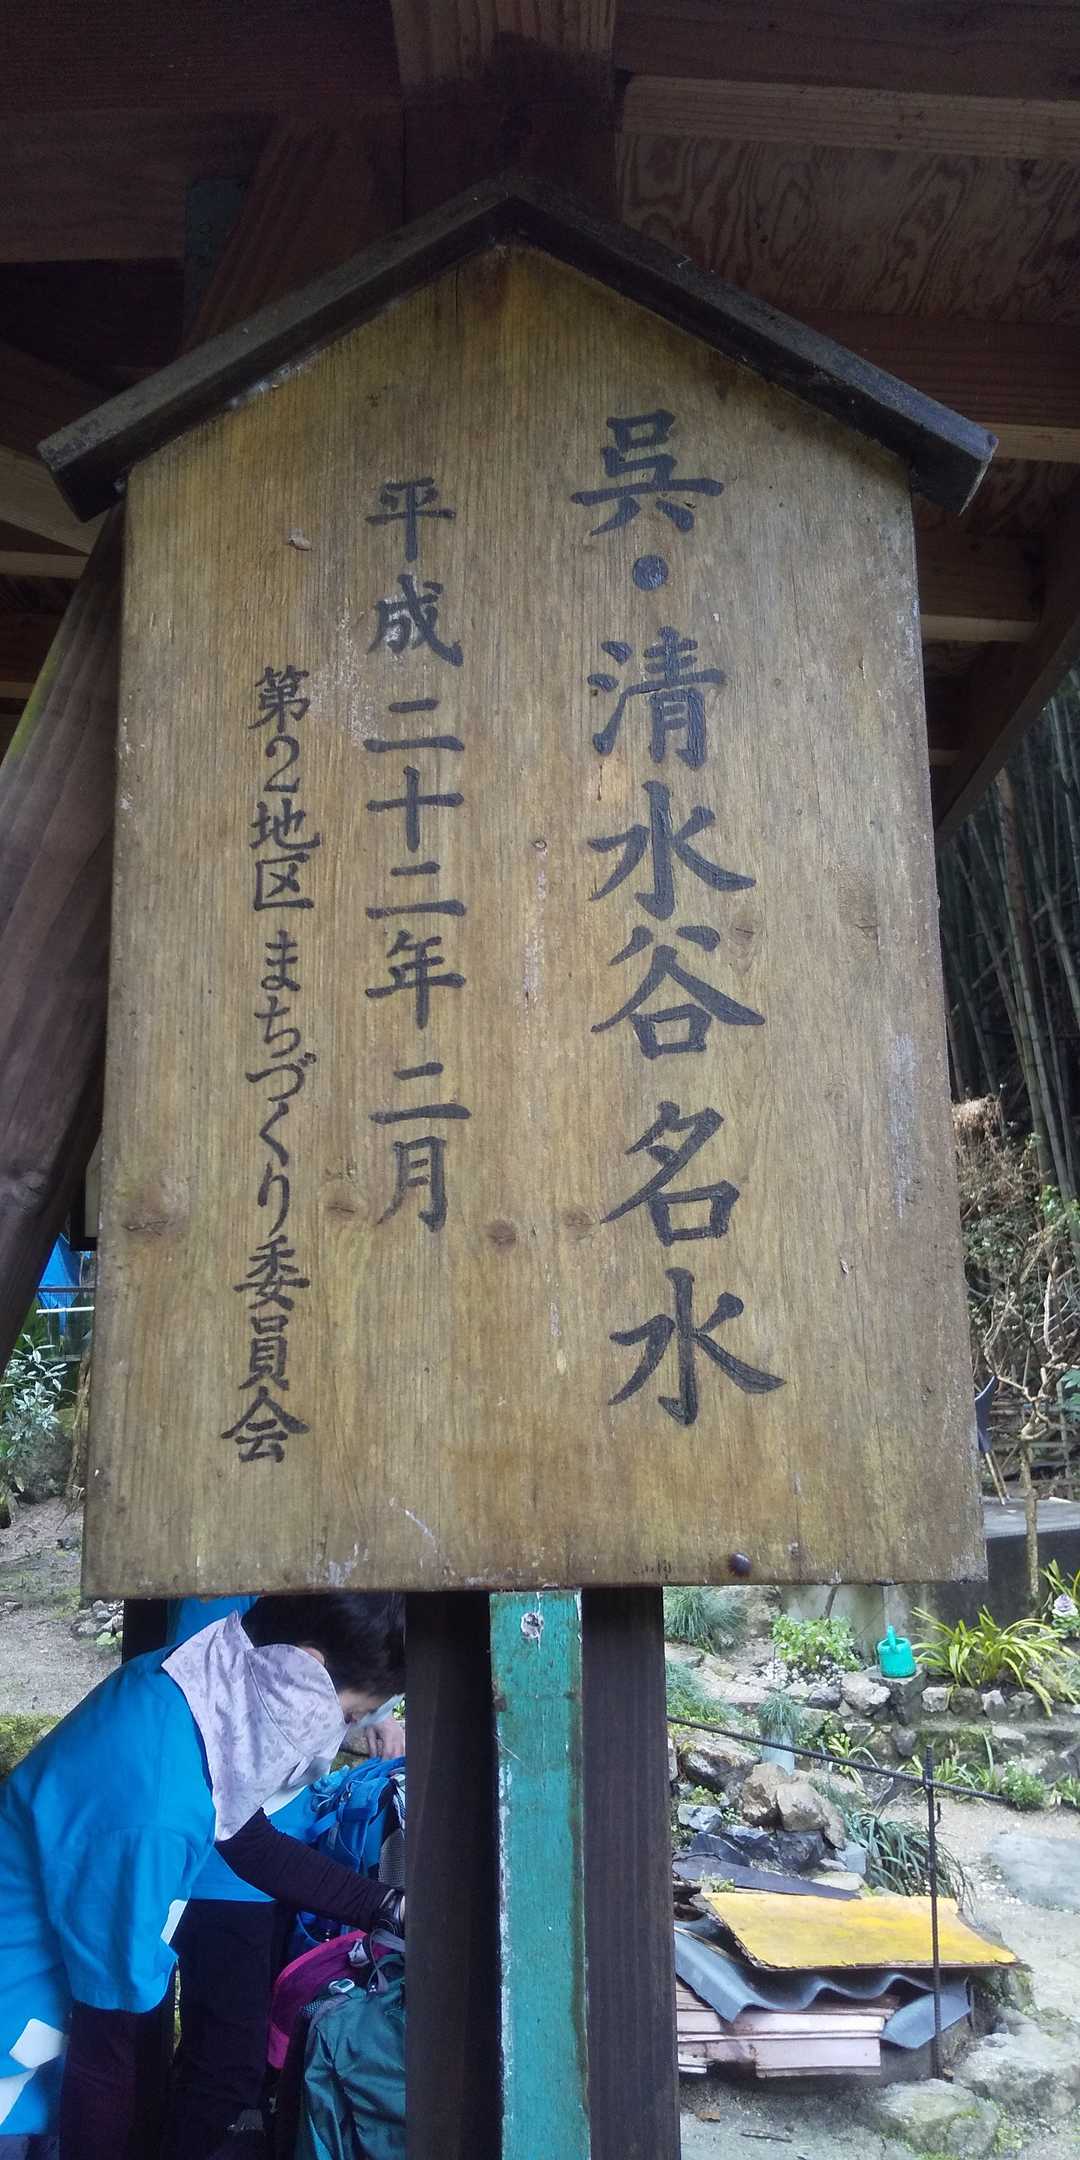 呉・清水谷名水
平成二十二年二月
第2地区まちづくり委員会